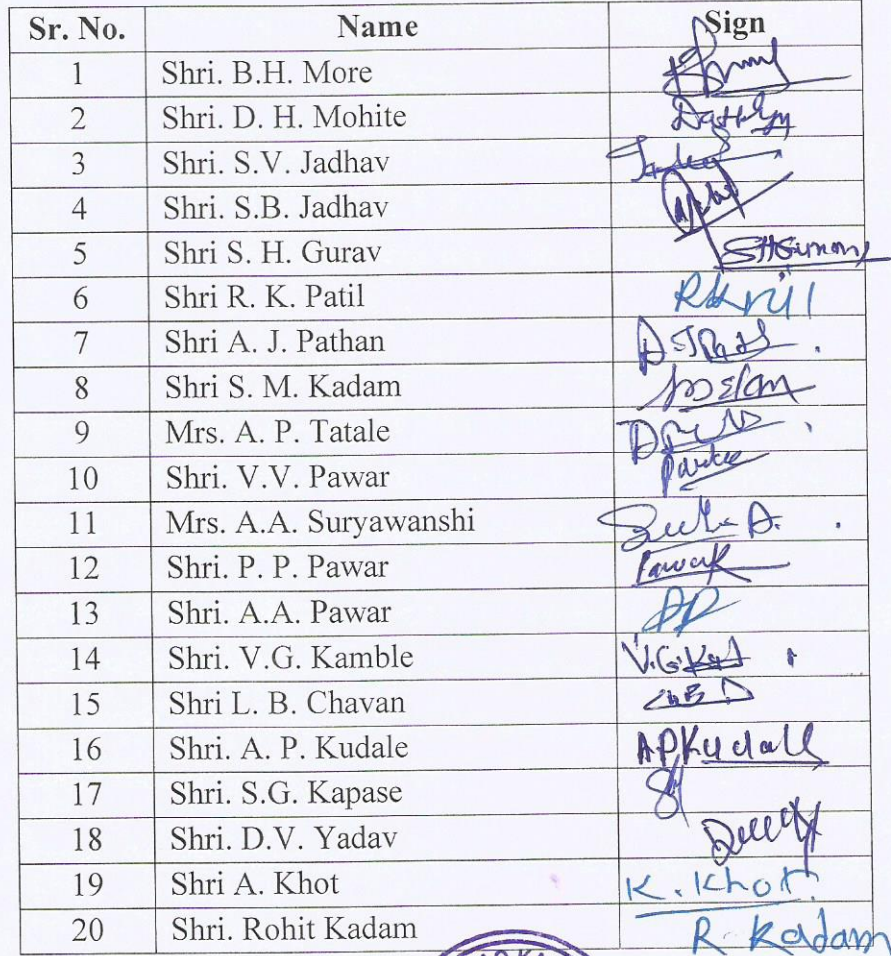 Sr. No. Name Sign
1 Shri. B.H. More
2 Shri. D. H. Mohite
3 Shri. S.V. Jadhav
4 Shri. S.B. Jadhav
5 Shri S. H. Gurav
6 Shri R. K. Patil
7 Shri A. J. Pathan
8 Shri S. M. Kadam
9 Mrs. A. P. Tatale
10 Shri. V.V. Pawar
11 Mrs. A.A. Suryawanshi
12 Shri. P. P. Pawar
13 Shri. A.A. Pawar
14 Shri. V.G. Kamble
15 Shri L. B. Chavan
16 Shri. A. P. Kudale APKudale
17 Shri. S.G. Kapase
18 Shri. D.V. Yadav
19 Shri A. Khot K. Khot
20 Shri. Rohit Kadam R Kadam